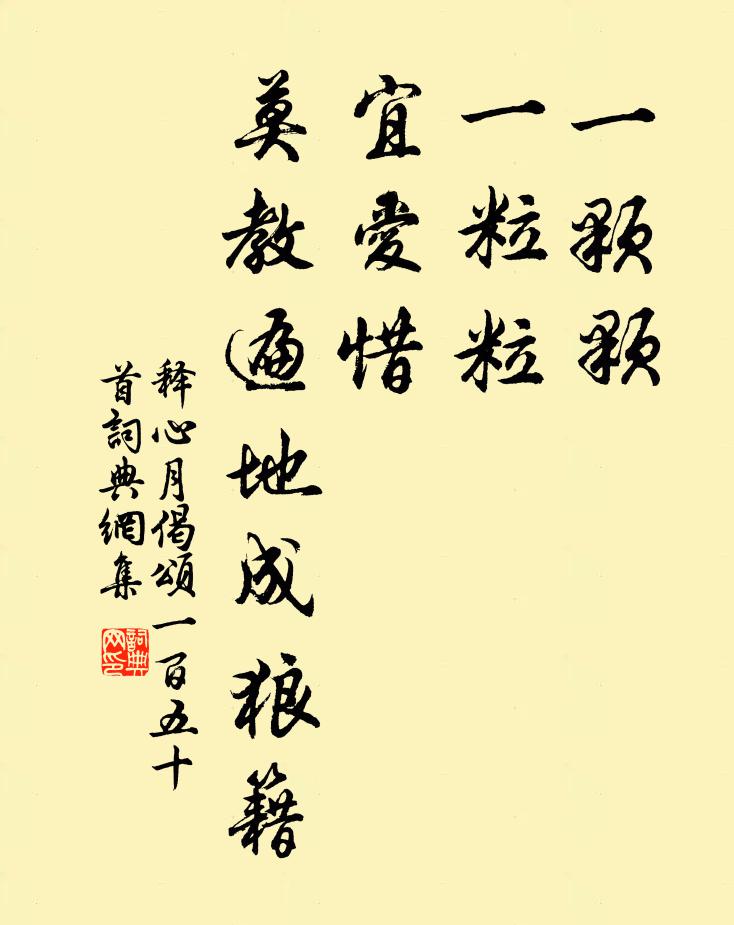 一顆顆
一粒粒
宜愛惜
莫教遍地成狼籍
释心月偈頌一百五十
首詞典網集
詞典
网印